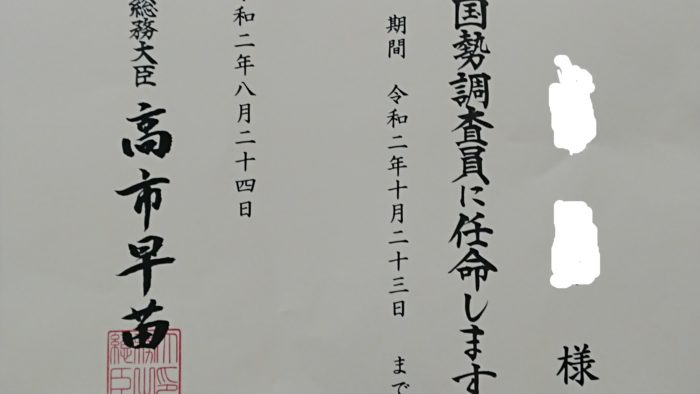 様
国勢調査員に任命します
期間 令和二年十月二十三日 まで
和二年八月二十四日
総務大臣 高市早苗